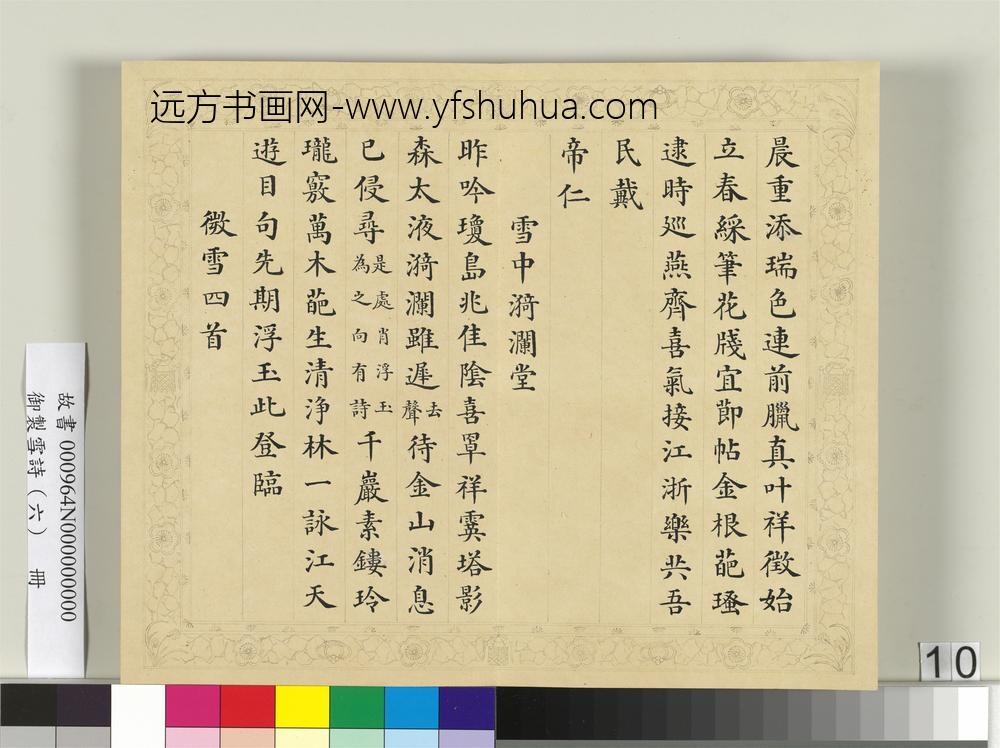 远方书画网-www.yfshuhua.com
晨重添瑞色連前臘真叶祥徵始
立春綵筆花牋宜莭帖金根葩瑵
逮時廵燕齊喜氣接江浙樂共吾
民戴
帝仁
雪中漪瀾堂
昨吟瓊島兆佳陰喜罩祥霙塔影
森太液漪瀾雖遲去聲待金山消息
已侵尋是處肖浮玉為之向有詩千巖素鏤玲
瓏竅萬木葩生清浄林一詠江天
遊目句先期浮玉此登臨
微雪四首
故書 000964N000000000
御製雪詩(六) 冊
10